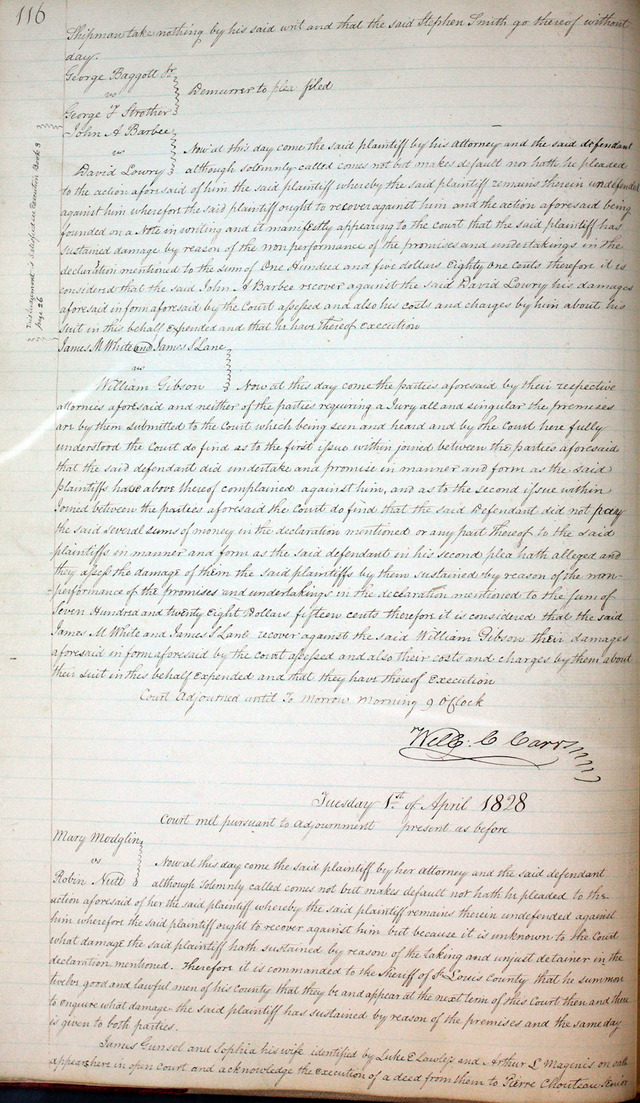 116
Shipman take nothing by his said writ and that the said Stephen Smith go thereof without
day.
George Baggott Jr
vs
Demurrer to plea filed
George F Strother
John A Barbee
vs
Now at this day come the said plaintiff by his Attorney and the said defendant
David Lowry
although solemnly called comes not but makes default nor hath he pleaded
to the action aforesaid of him the said plaintiff whereby the said plaintiff remains therein undefended
against him wherefore the said plaintiff ought to recover against him and the action aforesaid being
founded on a Note in writing and it manifestly appearing to the court that the said plaintiff has
sustained damage by reason of the non performance of the promises and undertakings in the
declaration mentioned to the sum of One Hundred and five dollars Eighty one cents therefore it is
considered that the said John A Barbee recover against the said David Lowry his damages
aforesaid in form aforesaid by the Court assessed and also his costs and charges by him about his
suit in this behalf Expended and that he have thereof execution
This Judgment is Satisfied in Execution Book 3
page 26
James M White and James S Lane
vs
William Gibson
Now at this day come the parties aforesaid by their respective
attornies aforesaid and neither of the parties requiring a Jury all and singular the premises
are by them submitted to the Court which being seen and heard and by the Court here fully
understood the Court do find as to the first issue within joined between the parties aforesaid
that the said defendant did undertake and promise in manner and form as the said
plaintiffs have above thereof complained against him, and as to the second issue within
Joined between the parties aforesaid the Court do find that the said Defendant did not pay
the said several sums of money in the declaration mentioned or any part thereof to the said
plaintiffs in manner and form as the said defendant in his second plea hath alleged and
they assess the damage of them the said plaintiffs by them sustained by reason of the non-
performance of the promises and undertakings in the declaration mentioned to the sum of
Seven Hundred and twenty Eight Dollars fifteen cents therefore it is considered that the said
James M White and James S Lane recover against the said William Gibson their damages
aforesaid in form aforesaid by the court assessed and also their costs and charges by them about
their suit in this behalf Expended and that they have thereof Execution
Court Adjourned until To Morrow Morning 9 O'Clock
Will: C Carr
Tuesday 1st of April 1828
Court met pursuant to Adjournment present as before
Mary Modglin
vs
Now at this day come the said plaintiff by her attorney and the said defendant
Robin Nutt
although solemnly called comes not but makes default nor hath he pleaded to the
action aforesaid of her the said plaintiff whereby the said plaintiff remains therein undefended against
him wherefore the said plaintiff ought to recover against him but because it is unknown to the Court
what damage the said plaintiff hath sustained by reason of the taking and unjust detainer in the
declaration mentioned. Therefore it is commanded to the Sheriff of St Louis County that he summon
twelve good and lawful men of his county that they be and appear at the next term of this Court then and there
to enquire what damage the said plaintiff has sustained by reason of the premises and the same day
is given to both parties.
James Gunsel and Sophia his wife identified by Luke E Lawless and Arthur L Magenis on oath
appears here in open Court and acknowledge the execution of a deed from them to Pierre Chouteau Senior